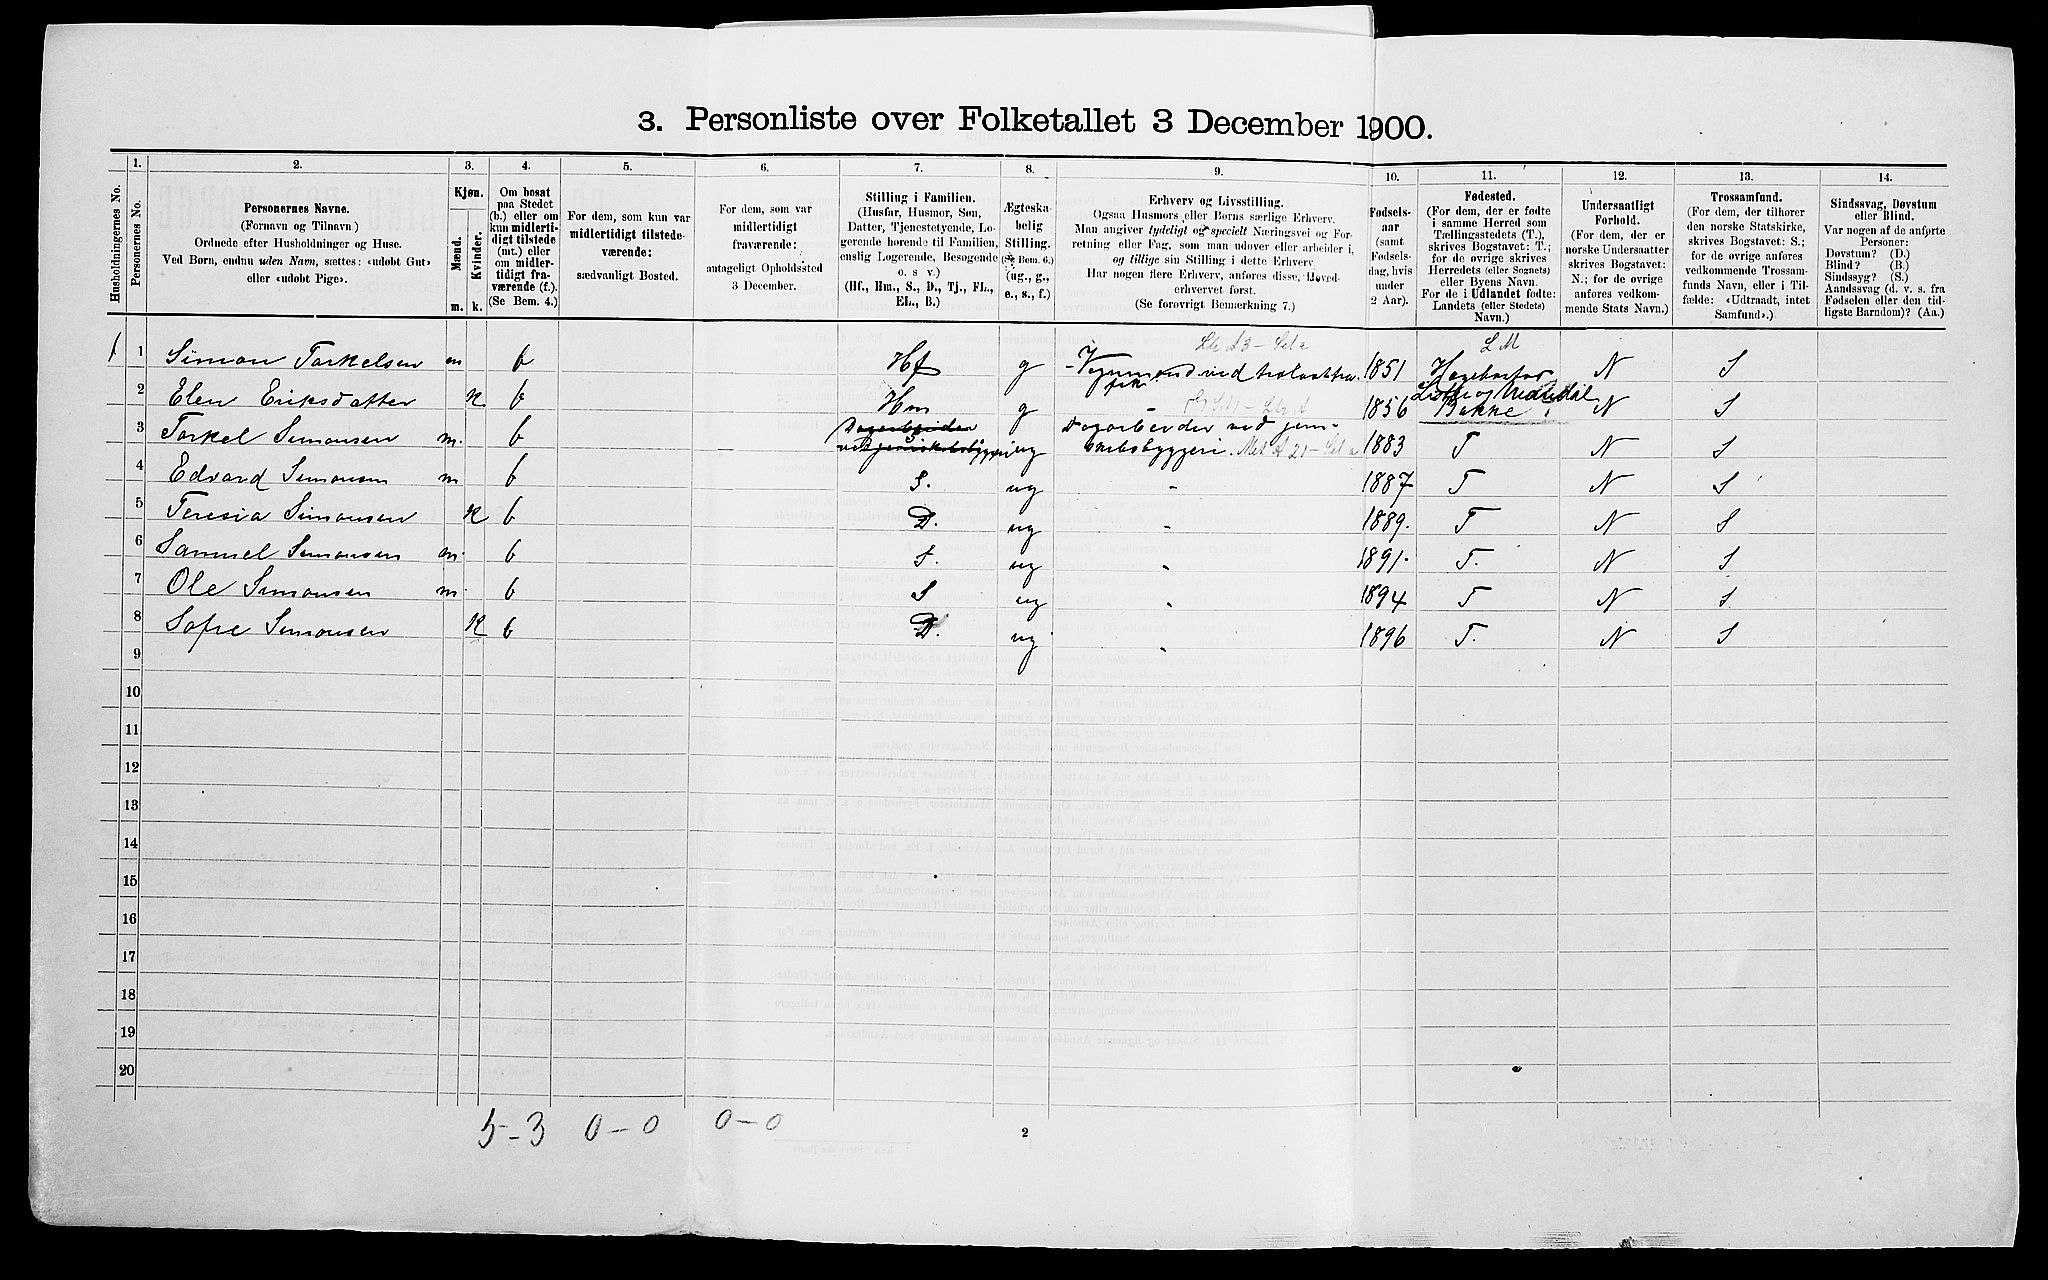 3. Personliste over Folketallet 3 December 1900.
Husholdningernes No.
1.
Personernes No.
2.
Personernes Navne.
(Fornavn og Tilnavn)
Ordnede efter Husholdninger og Huse.
Ved Børn, endnu uden Navn, sættes: «udøbt Gut»
eller «udøbt Pige».
3.
Kjøn.
Mænd.
Kvinder.
m. k.
4.
Om bosat
paa Stedet
(b.) eller om
kun midler-
tidigt tilstede
(mt.) eller
om midler-
tidigt fra-
værende (f.).
(Se Bem. 4.)
5.
For dem, som kun var
midlertidigt tilstede-
værende:
sædvanligt Bosted.
6.
For dem, som var
midlertidigt
fraværende:
antageligt Opholdssted
3 December.
7.
Stilling i Familien.
(Husfar, Husmor, Søn,
Datter, Tjenestetyende, Lo-
gerende hørende til Familien,
enslig Logerende, Besøgende
o. s v.)
(Hf., Hm., S., D., Tj., FL.,
EL., B.)
8.
Ægteska-
belig
Stilling.
(Se Bem. 6.)
(ug., g.,
e., s., f.)
9.
Erhverv og Livsstilling.
Ogsaa Husmors eller Børns særlige Erhverv.
Man angiver tydeligt og specielt Næringsvei og For-
retning eller Fag, som man udøver eller arbeider i,
og tillige sin Stilling i dette Erhverv.
Har nogen flere Erhverv, anføres disse, Hoved-
erhvervet først.
(Se forøvrigt Bemærkning 7.)
10.
Fødsels-
aar
(samt
Fødsels-
dag, hvis
under
2 Aar).
11.
Fødested.
(For dem, der er fødte
i samme Herred som
Tællingsstedets (T.),
skrives Bogstavet: T.;
for de øvrige skrives
Herredets (eller Sognets)
eller Byens Navn.
For de i Udlandet fødte:
Landets (eller Stedets)
Navn.)
12.
Undersaatligt
Forhold.
(For dem, der er
norske Undersaatter
skrives Bogstavet:
N.; for de øvrige
anføres vedkom-
mende Stats Navn.)
13.
Trossamfund.
(For dem, der tilhører
den norske Statskirke,
skrives Bogstavet: S.;
for de øvrige anføres
vedkommende Trossam-
funds Navn, eller i Til-
fælde: «Udtraadt, intet
Samfund».)
14.
Sindssvag, Døvstum
eller Blind.
Var nogen af de anførte
Personer:
Døvstum? (D.)
Blind? (B.)
Sindssyg? (S.)
Aandssvag (d. v. s. fra
Fødselen eller den tid-
ligste Barndom)? (Aa.)
1 1 Simon Torkelsen m b Hf g 1851 L M N S
2 Elen Eriksdatter k b Hm g - 1856 Bakke N S
3 Torkel Simonsen m. b S ug Dagarbeider ved jern- banebyggeri. 1883 T N S
4 Edvard Simonsen m b S. ug " 1887 T N S
5 Teresia Simonsen k b D. ug " 1889. T N S
6 Samuel Simonsen m. b S. ug " 1891. T. N S
7 Ole Simonsen m. b S ug " 1894 T N S
8 Sofie Simonsen K b D. ug " 1896 T. N S
9
10
11
12
13
14
15
16
17
18
19
20
5-3 0-0 0-0
2